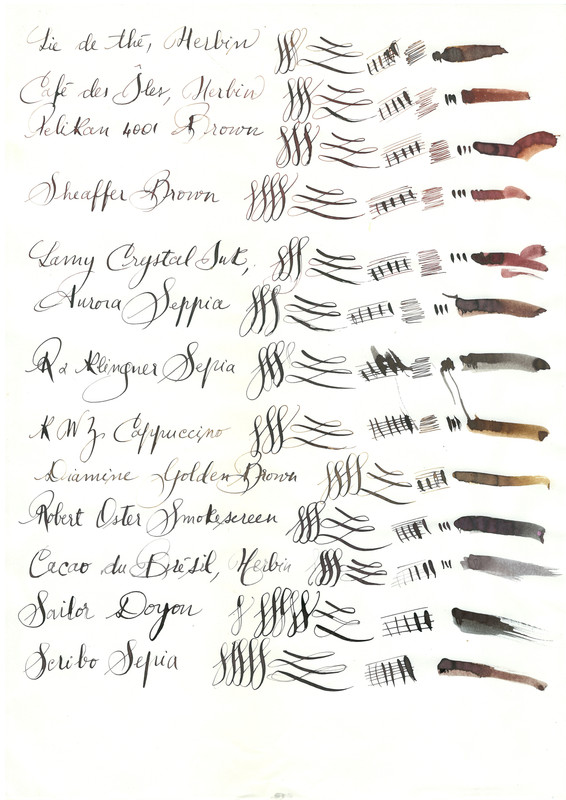 Lie de thé, Herbin
Café des Îles, Herbin
Pelikan 4001 Brown
Sheaffer Brown
Lamy Crystal Ink,
Aurora Seppia
R & Klingner Sepia
K W Z Cappuccino
Diamine Golden Brown
Robert Oster Smokescreen
Cacao du Brésil, Herbin
Sailor Doyou
Scribo Sepia